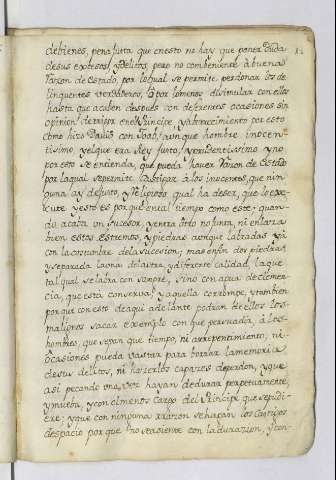 de bienes, pena justa que en esto no hay que poner Duda
de sus excesos, y Delitos, pero no combeniente à buena
Razon de Estado, por lo qual se permite perdonar los de
linquentes verdaderos, ò por lo menos disimular con ellos
hasta que acaben despues con diferentes ocasiones sin
opinion de rigor en el Principe, y aborrecimiento por esto
como hizo David con Joab, aunque hombre inocen-
tissimo, y el que era Rey justo, y prudentissimo y no
por esto se entienda, que pueda haver razon de Estado
por la qual se permite castigar à los inocentes, que nin-
guna ay de justo, y Religioso qual ha de ser, que lo exe-
cute y esto es por que en tal tiempo como este: quan-
do acaba un Sucesor, y entra otro no junta, ni enlaza
bien estos estremos, y piedras aunque labradas ya
con la costumbre de la sucesion; mas en fin dos piedras,
y separada la una de la otra y diferente calidad, la que
tal qual se labra con sangre, sino con agua de clemen-
cia, que esta conserva, y aquella corrompe, y tambien
por que con esto de aqui adelante podran de ellos los
malignos sacar exemplo con que persuadir, à los
hombres, que sepan que tiempo, ni arrepentimiento, ni
ocasiones pueda vastar para borrar la memoria
de sus delitos, ni hacerlos capazes de perdon, y que
asi pecando una vez hayan de durar perpetuamente,
y muera, y con el menos cargo del Principe que se pudi-
ere; y que con ninguna razon se hagan los Castigos
despacio por que no se aciente con la duracion, y con-